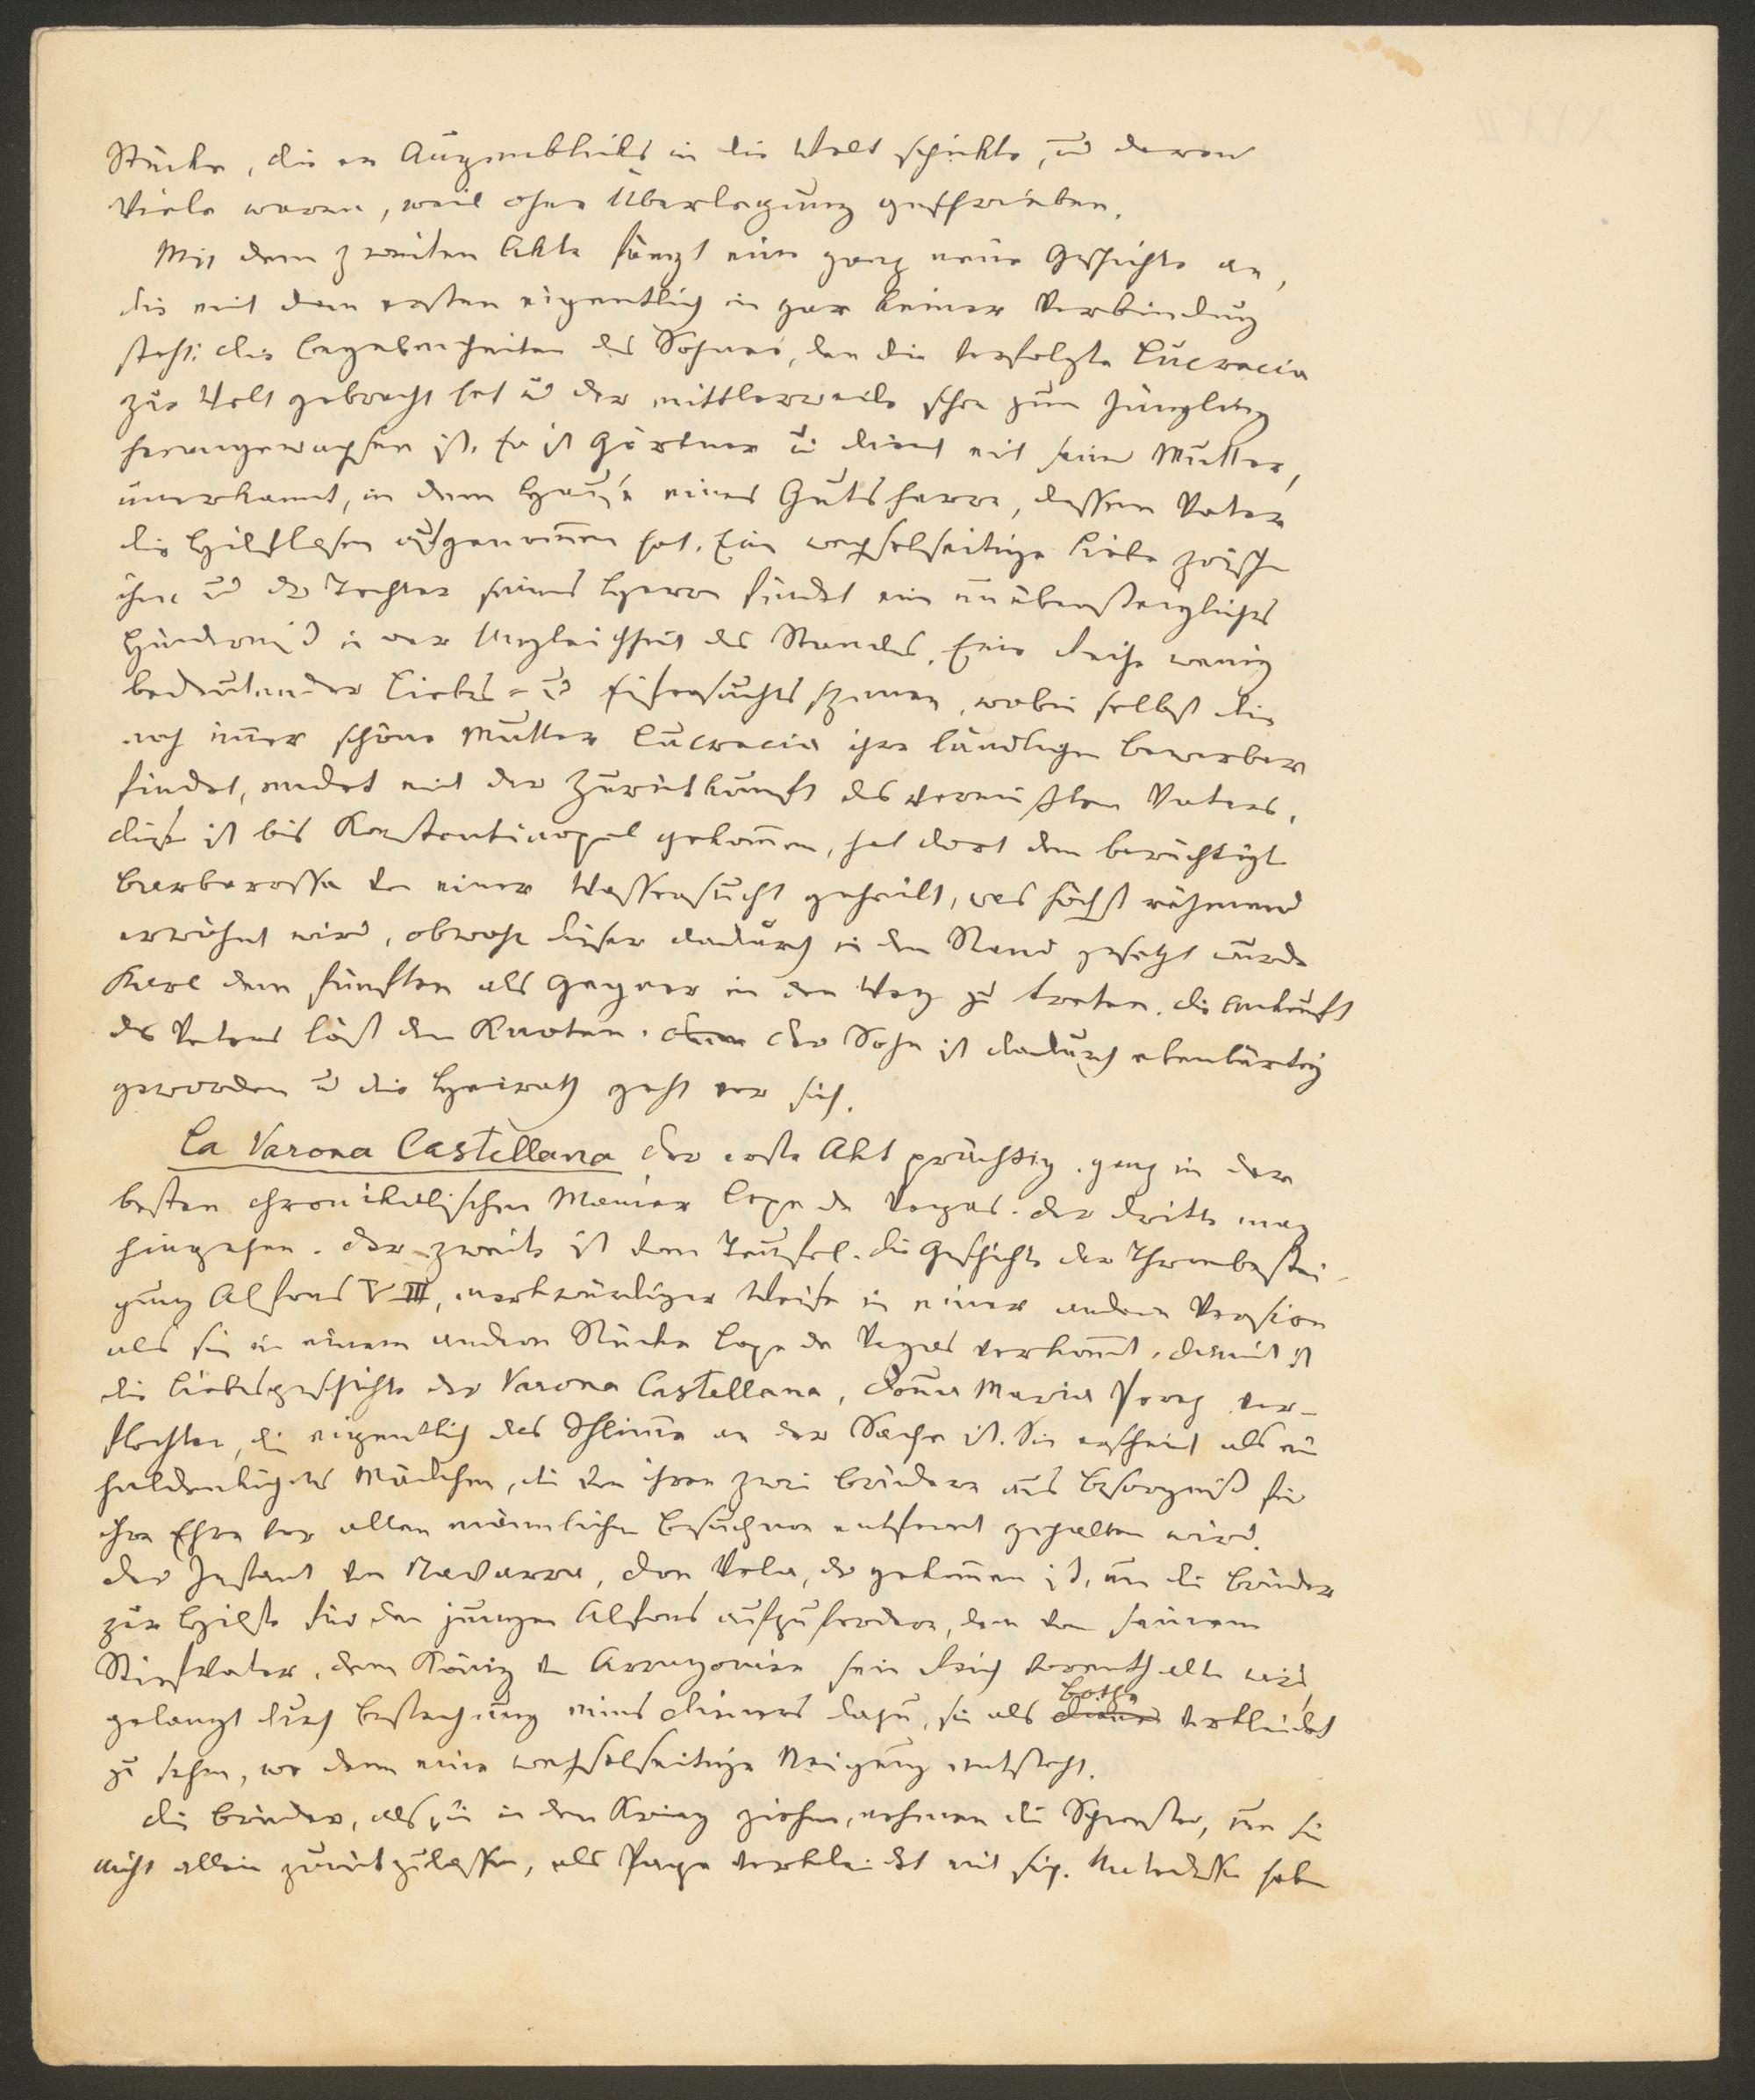 Stücke, die er Augenblicks in die Welt schickte, und deren
Viele waren, weil ohne Überlegung geschrieben.
Mit dem zweiten Akte fängt eine ganz neue Geschichte an,
die mit dem ersten eigentlich in gar keiner Verbindung
steht: die Begebenheiten des Sohnes, den die verfolgte Lucrecia
zur Welt gebracht hat ud der mittlerweile schon zum Jüngling
herangewachsen ist. Er ist Gärtner ud dient mit seiner Mutter,
unerkannt, in dem Hause eines Gutsherrn, dessen Vater
die Hilflosen aufgenom̅en hat. Eine wechselseitige Liebe zwischen
ihm ud der Tochter seines Herrn findet ein unübersteigliches
Hinderniß in der Ungleichheit des Standes. Eine Reihe wenig
bedeutender Liebes- ud Eifersuchtsszenen, wobei selbst die
noch im̅er schöne Mutter Lucrecia ihre ländlichen Bewerber
findet, endet mit der Zurückkunft des vermißten Vaters.
Dieser ist bis Konstantinopel gekom̅en, hat dort den berüchtigten
Barbarossa von einer Wassersucht geheilt, was höchst rühmend
erwähnt wird, obwohl dieser dadurch in den Stand gesetzt wurde
Karl dem fünften als Gegner in den Weg zu treten. Die Ankunft
des Vaters löst den Knoten. Der Sohn ist dadurch ebenbürtig
geworden ud die Heirath geht vor sich.
La Varona Castellana Der erste Akt prächtig. ganz in der
besten chronikalischen Manier Lope de Vegas. Der dritte mag
hingehen. Der zweite ist dem Teufel. Die Geschichte der Thronbestei-
gung Alfons VIII, merkwürdiger Weise in einer andern Version
als sie in einem andern Stücke Lope de Vegas vorkom̅t. Damit ist
die Liebesgeschichte der Varona Castellana, Don̅a Maria Perez ver-
flochten, die eigentlich das Schlim̅e an der Sache ist. Sie erscheint als ein
heldenkühnes Mädchen, die von ihren zwei Brüdern aus Besorgniß für
ihre Ehre vor allen männlichen Besuchern entfernt gehalten wird.
Der Infant von Navarra, Don Vela, der gekom̅en ist, um die Brüder
zur Hilfe für den jungen Alfons aufzufordern, dem von seinem
Stiefvater, dem König von Arragonien sein Reich vorenthalten wird,
gelangt durch Bestechung eines Dieners dazu, sie als Bothe verkleidet
zu sehen, wo denn eine wechselseitige Neigung entsteht.
Die Brüder, als sie in den Krieg ziehen, nehmen die Schwester, um sie
nicht allein zurückzulassen, als Page verkleidet mit sich. Unterdessen haben